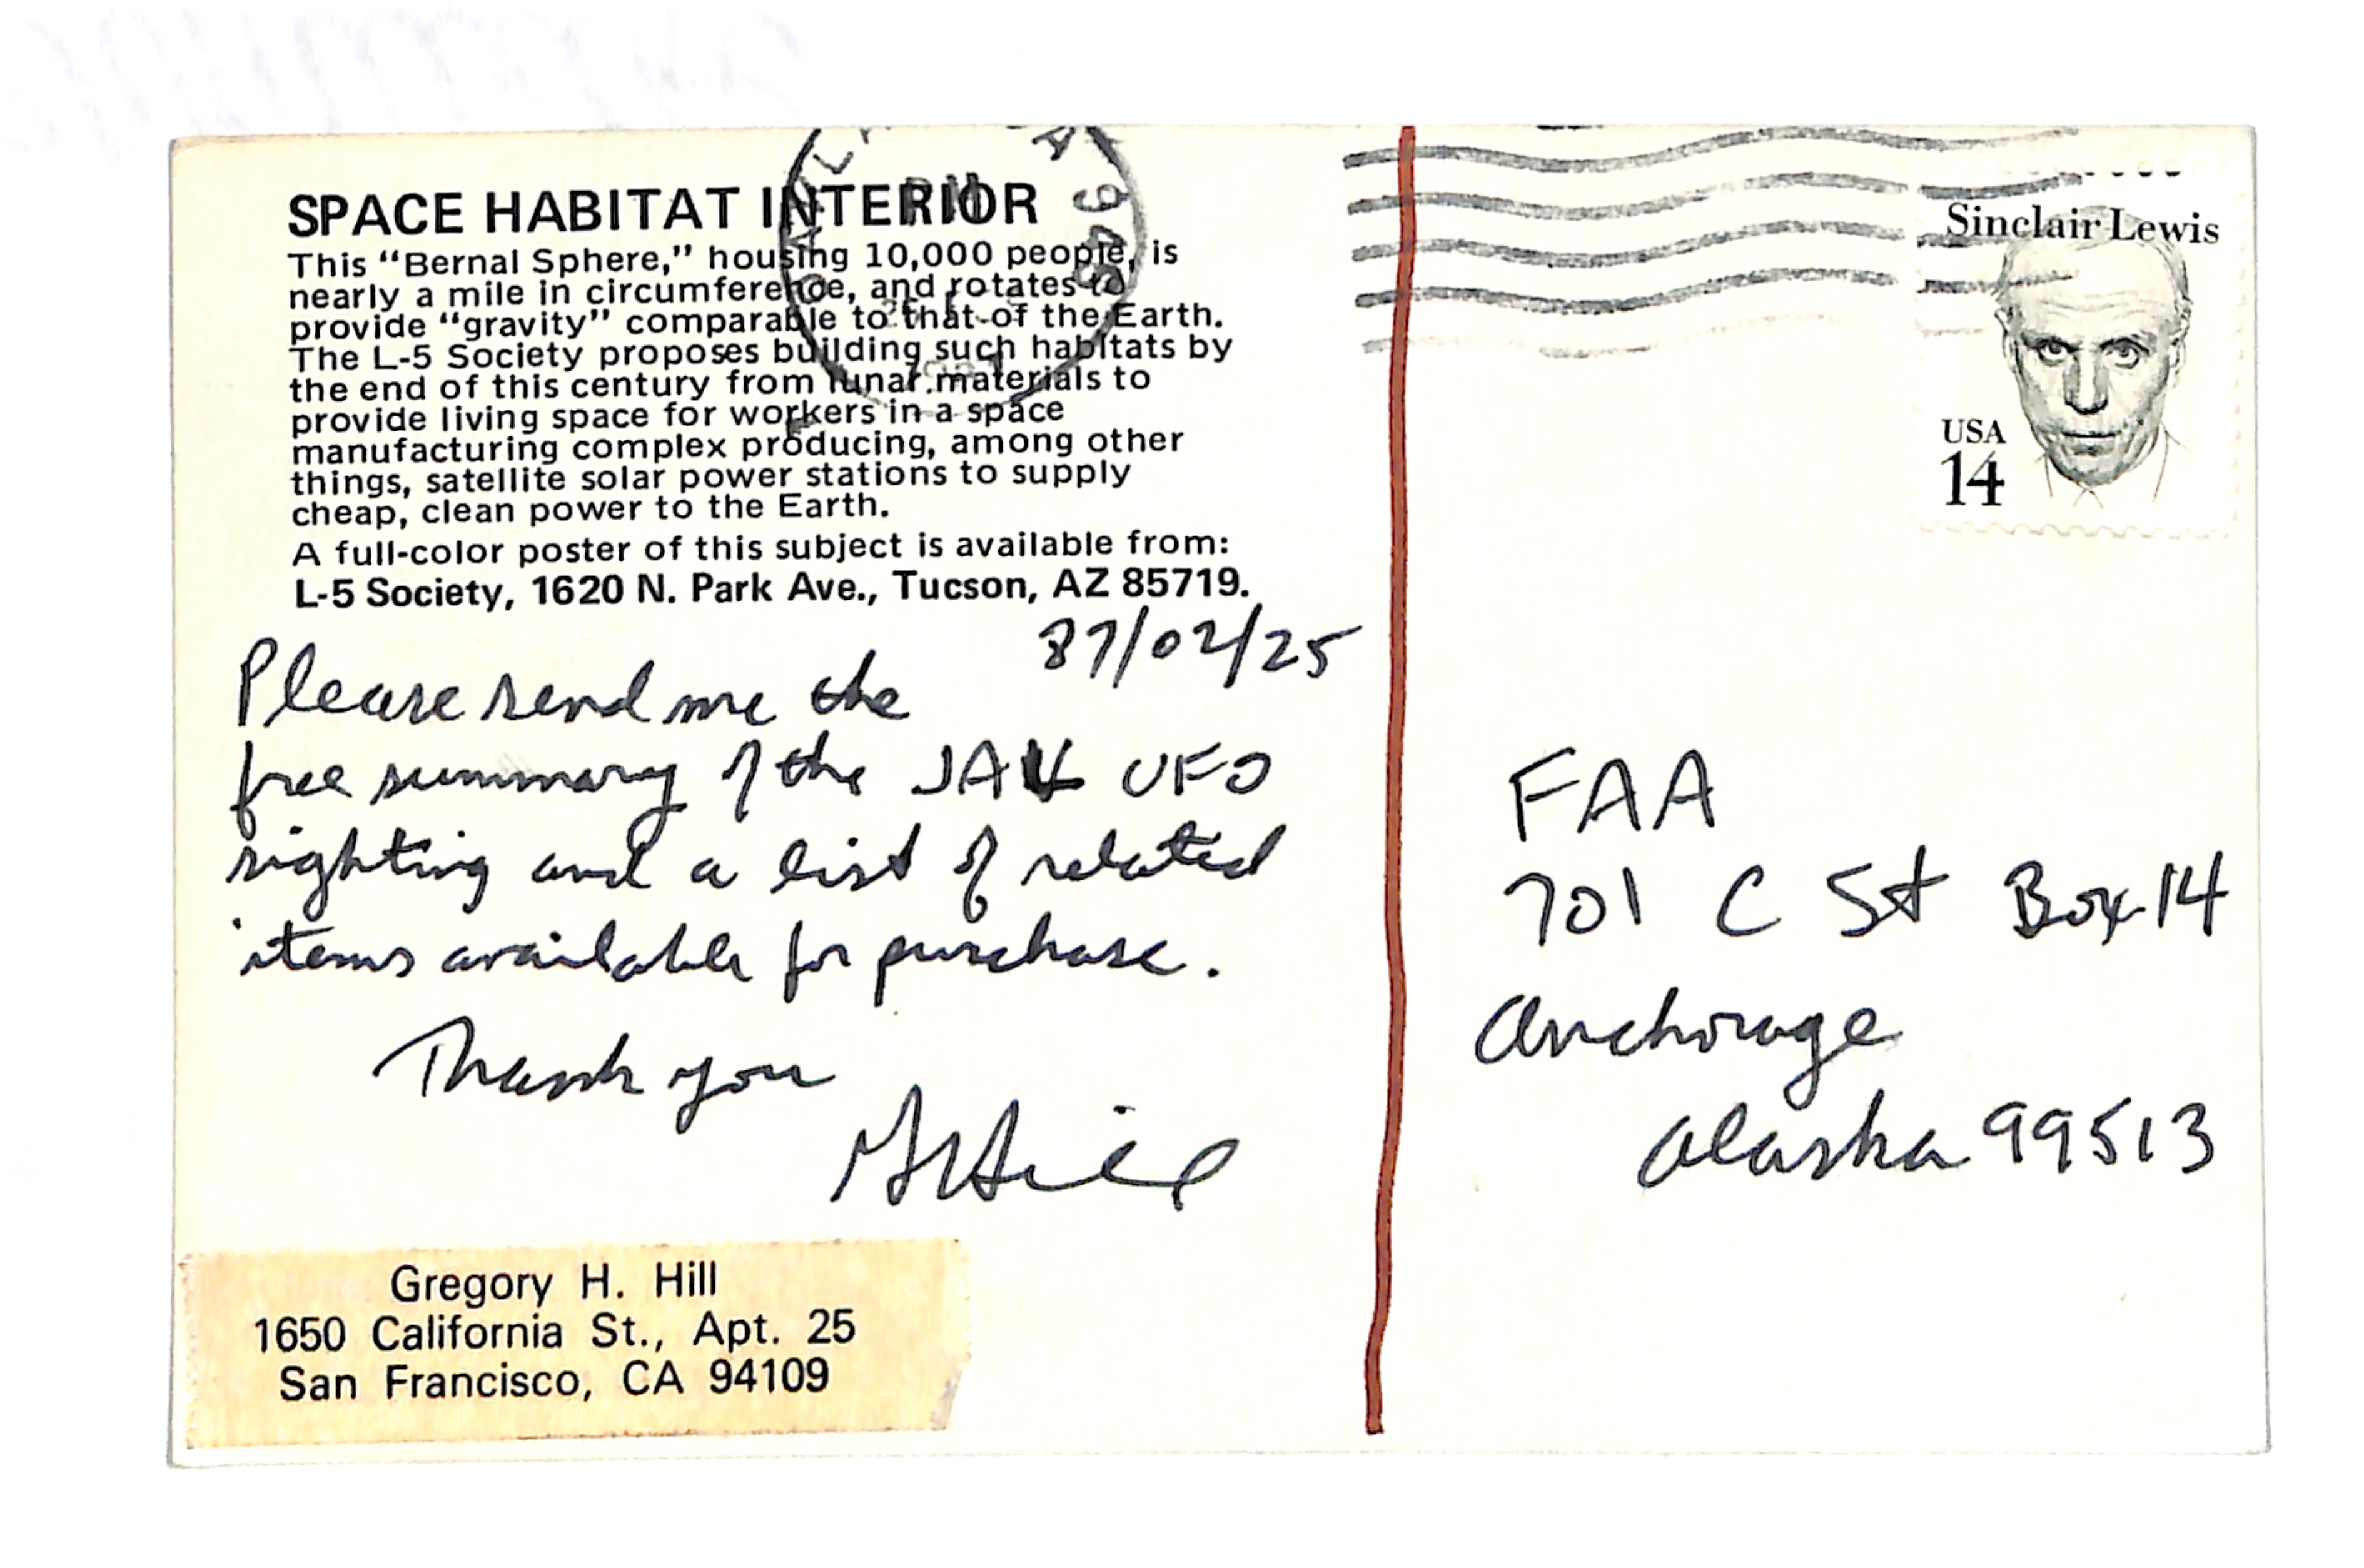 SPACE HABITAT INTERIOR
This “Bernal Sphere,” housing 10,000 people, is
nearly a mile in circumference, and rotates to
provide “gravity” comparable to that of the Earth.
The L-5 Society proposes building such habitats by
the end of this century from lunar materials to
provide living space for workers in a space
manufacturing complex producing, among other
things, satellite solar power stations to supply
cheap, clean power to the Earth.
A full-color poster of this subject is available from:
L-5 Society, 1620 N. Park Ave., Tucson, AZ 85719.
87/02/25
Please send me the
free summary of the JAL UFO
sighting and a list of related
items available for purchase.
Thank you
GHHill
Gregory H. Hill
1650 California St., Apt. 25
San Francisco, CA 94109
PM
Sinclair Lewis
USA
14
FAA
701 C St Box 14
Anchorage
Alaska 99513